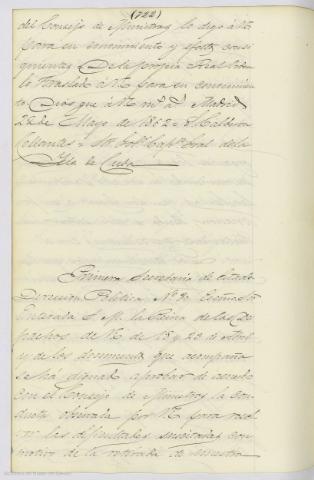 (722)
del Consejo de Ministros lo digo á VE
para su conocimiento y efectos consi
guientes. De la propia Real orden
lo traslado á VE para su conocimien
to. Dios gue á VE m.s a.s Madrid
22 de Mayo de 1862 = Calderon
Collantes = Sr. Gob.r Cap.n Gral de la
Isla de Cuba
Primera Secretaria de Estado
Direccion Politica Nº 80 Escmo Sr
Enterada S. M. la Reina de los Des
pachos de VE de 15 y 22 de Abril
y de los documentos que acompaña
se ha dignado aprobar de acuerdo
con el Consejo de Ministros la con
ducta observada por VE para resol
ver las dificultades suscitadas con
motivo de la retirada de nuestras